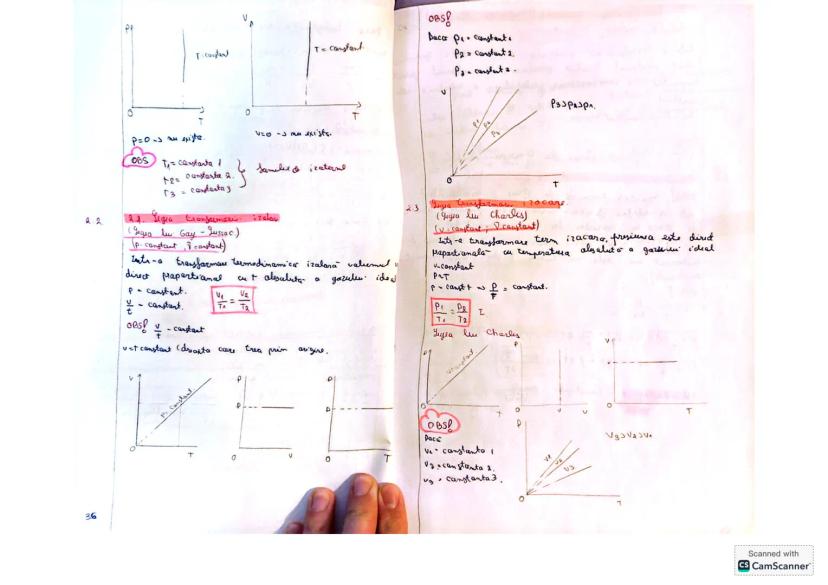 P
T = constant
O
T
V
T = constant
O
T
P=0 → nu existe.
V=0 → nu existe.
OBS
T1 = constanta 1
T2 = constanta 2.
T3 = constanta 3
2.2
2.2 Legea transformarii izobar
(Legea lui Gay-Lussac)
(p-constant, υ constant)
Intr-o transformare termodinamică izobară volumul
direct proportional cu t absoluta a gazului ideal
P = constant.
V/t - constant.
V1/T1 = V2/T2
OBS! V/t - constant
(dreapta care trea prin origine.
V
P. constant
O
T
P
P
O
V
P
P
O
T
36
OBS!
Daca P1 = constant 1
P2 = constant 2.
V
P1
P2
P3
O
T
P3>P2>P1.
2.3
Legea transformarii izocore
(Legea lui Charles)
(V-constant, υ constant)
Intr-o transformare term izocora, presiunea este direct
proportionala cu temperatura absoluta a gazului ideal
V-constant
P~T
P = const t → P/T = constant.
P1/T1 = P2/T2
Legea lui Charles
P
V-constant
O
T
P
O
V
V
V
O
T
OBS!
Daca
V1 = constanta 1
V2 = constanta 2.
V3 = constanta 3.
P
V1
V2
V3
O
T
V3>V2>V1
Scanned with
CS CamScanner